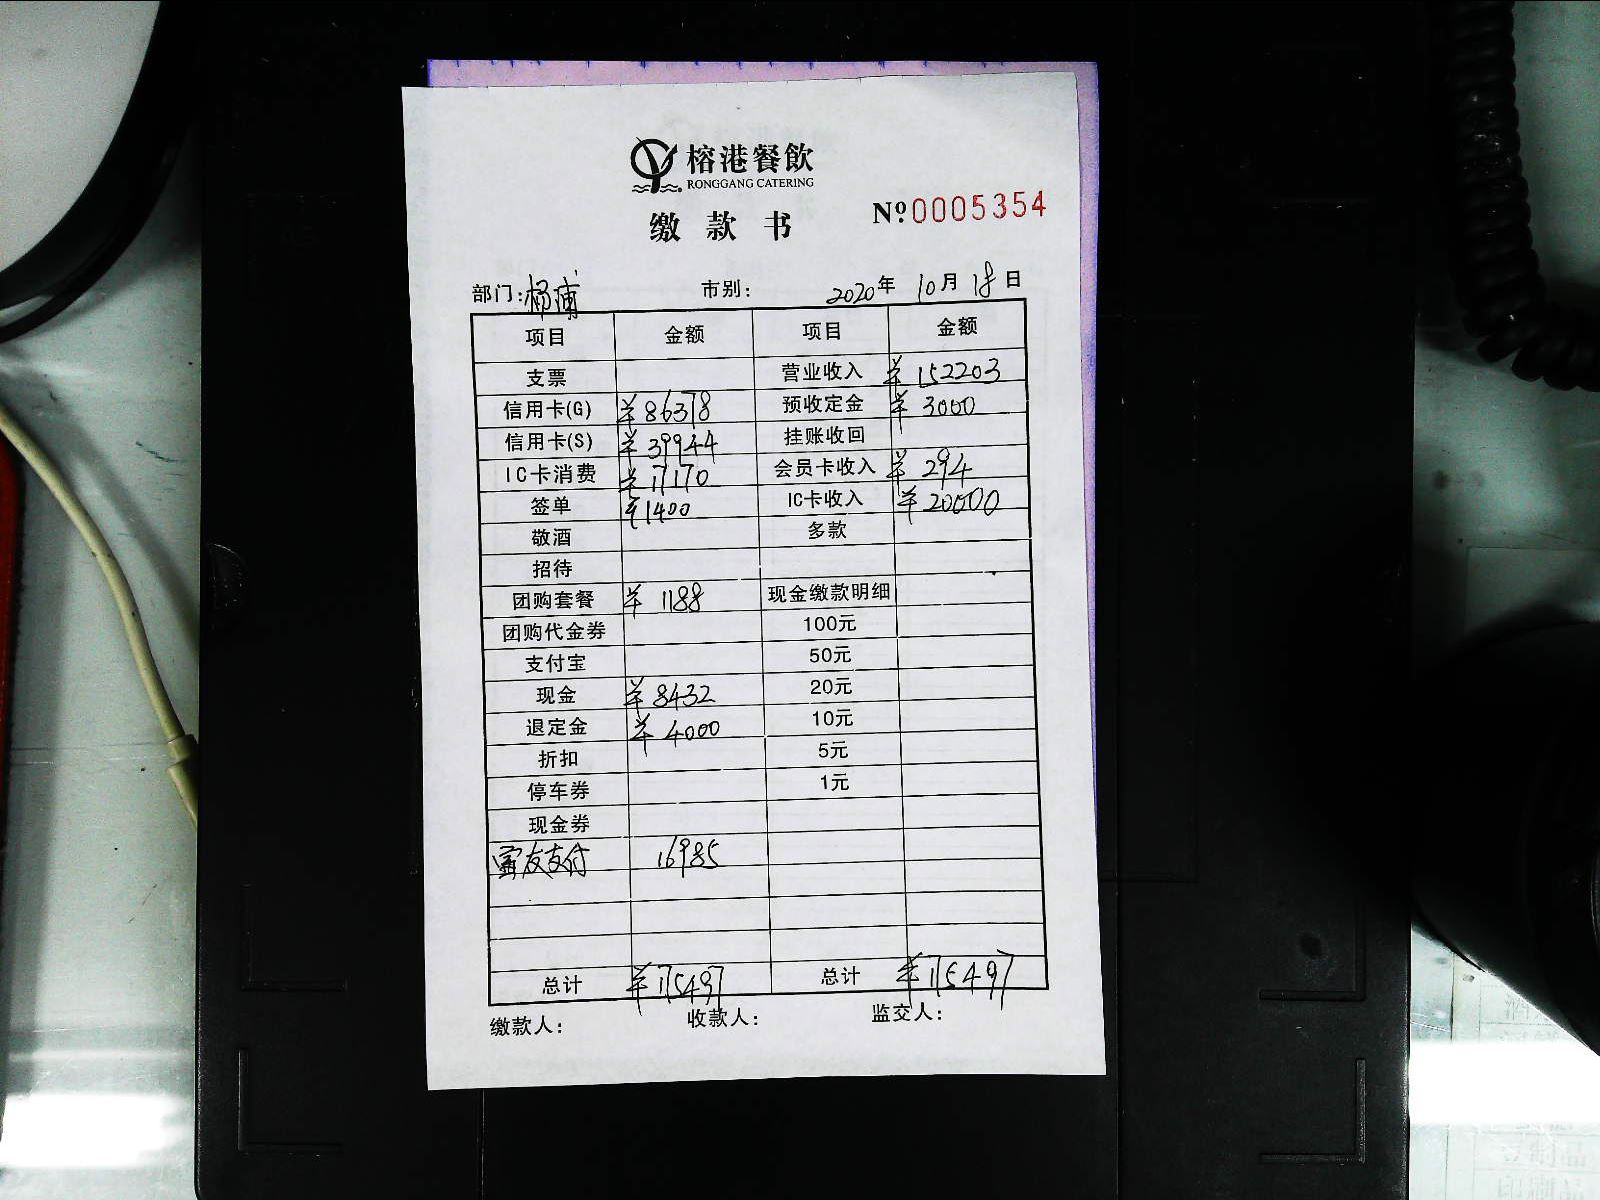 榕港餐飲
RONGGANG CATERING
缴款书 №0005354
部门:杨浦 市别: 2020年 10月 18日
项目 金额 项目 金额
支票 营业收入 ¥152203
信用卡(G) ¥86378 预收定金 ¥3000
信用卡(S) ¥39944 挂账收回
IC卡消费 ¥17170 会员卡收入 ¥294
签单 ¥1400 IC卡收入 ¥20000
敬酒 多款
招待
团购套餐 ¥1188 现金缴款明细
团购代金券 100元
支付宝 50元
现金 ¥8432 20元
退定金 ¥4000 10元
折扣 5元
停车券 1元
现金券
富友支付 16985
总计 ¥175497 总计 ¥175497
缴款人: 收款人: 监交人: